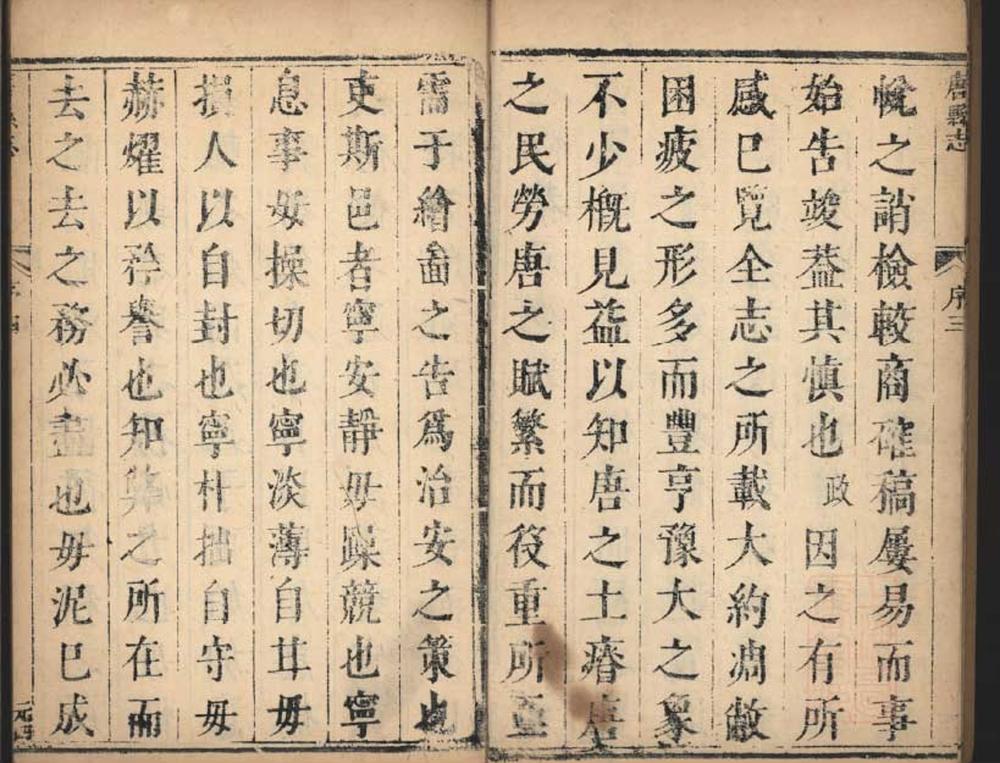 唐縣志 序三
帨之誚檢較商確稿屢易而事
始告竣葢其慎也政因之有所
感已覽全志之所載大約凋敝
困疲之形多而豐亨豫大之象
不少概見益以知唐之土瘠唐
之民勞唐之賦繁而役重所
需于繪畫之告爲治安之策也
吏斯邑者寧安靜毋躁競也寧
息事毋操切也寧淡薄自甘毋
損人以自封也寧朴拙自守毋
赫燿以矜譽也知弊之所在而
去之去之務必盡也毋泥已成